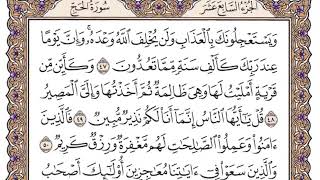 الجزء السابع عشر سورة الحج
وَيَسْتَعْجِلُونَكَ بِٱلْعَذَابِ وَلَن يُخْلِفَ ٱللَّهُ وَعْدَهُۥ ۚ وَإِنَّ يَوْمًا
عِندَ رَبِّكَ كَأَلْفِ سَنَةٍ مِّمَّا تَعُدُّونَ ٤٧ وَكَأَيِّن مِّن
قَرْيَةٍ أَمْلَيْتُ لَهَا وَهِىَ ظَالِمَةٌ ثُمَّ أَخَذْتُهَا وَإِلَىَّ ٱلْمَصِيرُ
٤٨ قُلْ يَـٰٓأَيُّهَا ٱلنَّاسُ إِنَّمَآ أَنَا۠ لَكُمْ نَذِيرٌ مُّبِينٌ ٤٩ فَٱلَّذِينَ
ءَامَنُوا۟ وَعَمِلُوا۟ ٱلصَّـٰلِحَـٰتِ لَهُم مَّغْفِرَةٌ وَرِزْقٌ كَرِيمٌ ٥٠
وَٱلَّذِينَ سَعَوْا۟ فِىٓ ءَايَـٰتِنَا مُعَـٰجِزِينَ أُو۟لَـٰٓئِكَ أَصْحَـٰبُ